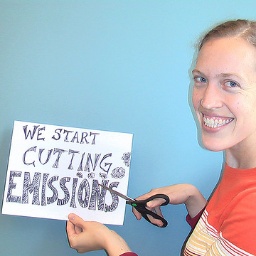 WE START
CUTTING
EMISSIONS